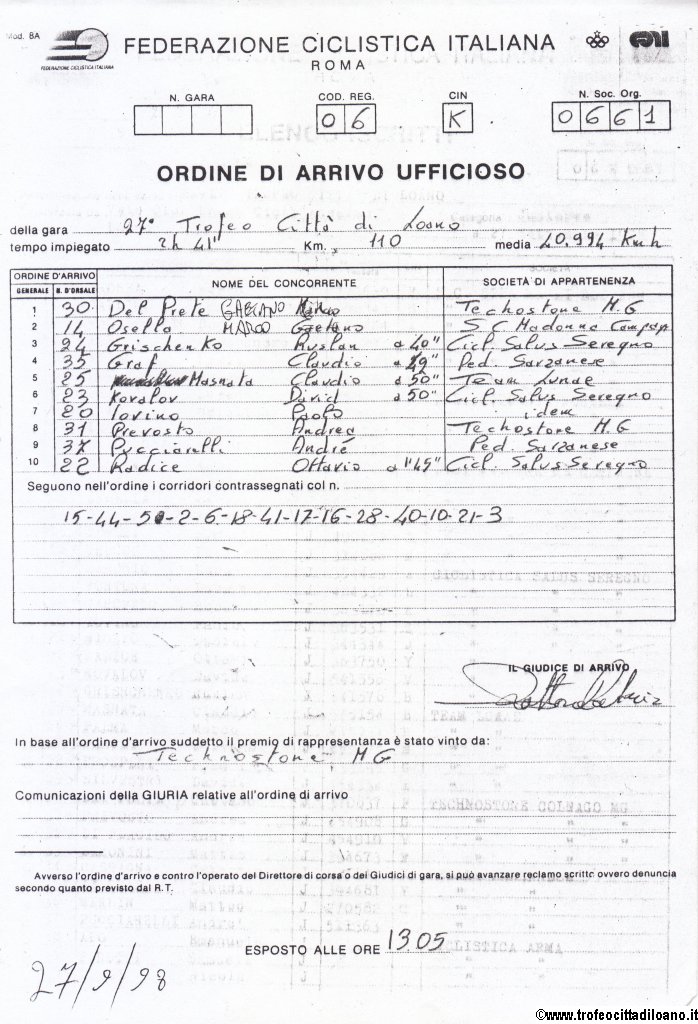 Mod. 8A
FEDERAZIONE CICLISTICA ITALIANA
FEDERAZIONE CICLISTICA ITALIANA
ROMA
N. GARA COD. REG. CIN N. Soc. Org.
06 K 0661
ORDINE DI ARRIVO UFFICIOSO
della gara 27° Trofeo Città di Loano
tempo impiegato 2h 41" Km. 110 media 40.994 Kmh
ORDINE D'ARRIVO NOME DEL CONCORRENTE SOCIETÀ DI APPARTENENZA
GENERALE N. D'ORSALE
1 30 Del Prete GAETANO Techostone M.G
2 14 Osella MARCO Gaetano S.C. Madonna Campagn
3 24 Grischenko Ruslan a 40" Cicl. Salus Seregno
4 35 Graf Claudio a 49" Ped. Sarzanese
5 25 Masnata Claudio a 50" Team Lunae
6 23 Kovalov David a 50" Cicl. Salus Seregno
7 20 Iovino Paolo idem
8 31 Prevosto Andrea Techostone M.G
9 37 Pucciarelli André Ped. Sarzanese
10 22 Radice Ottavio a 1'45" Cicl. Salus Seregno
Seguono nell'ordine i corridori contrassegnati col n.
15-44-5-2-6-18-41-17-16-28-40-10-21-3
IL GIUDICE DI ARRIVO
In base all'ordine d'arrivo suddetto il premio di rappresentanza è stato vinto da:
Technostone MG
Comunicazioni della GIURIA relative all'ordine di arrivo
Avverso l'ordine d'arrivo e contro l'operato del Direttore di corsa o dei Giudici di gara, si può avanzare reclamo scritto ovvero denuncia
secondo quanto previsto dal R.T.
ESPOSTO ALLE ORE 1305
27/9/98
©www.trofeocittadiloano.it